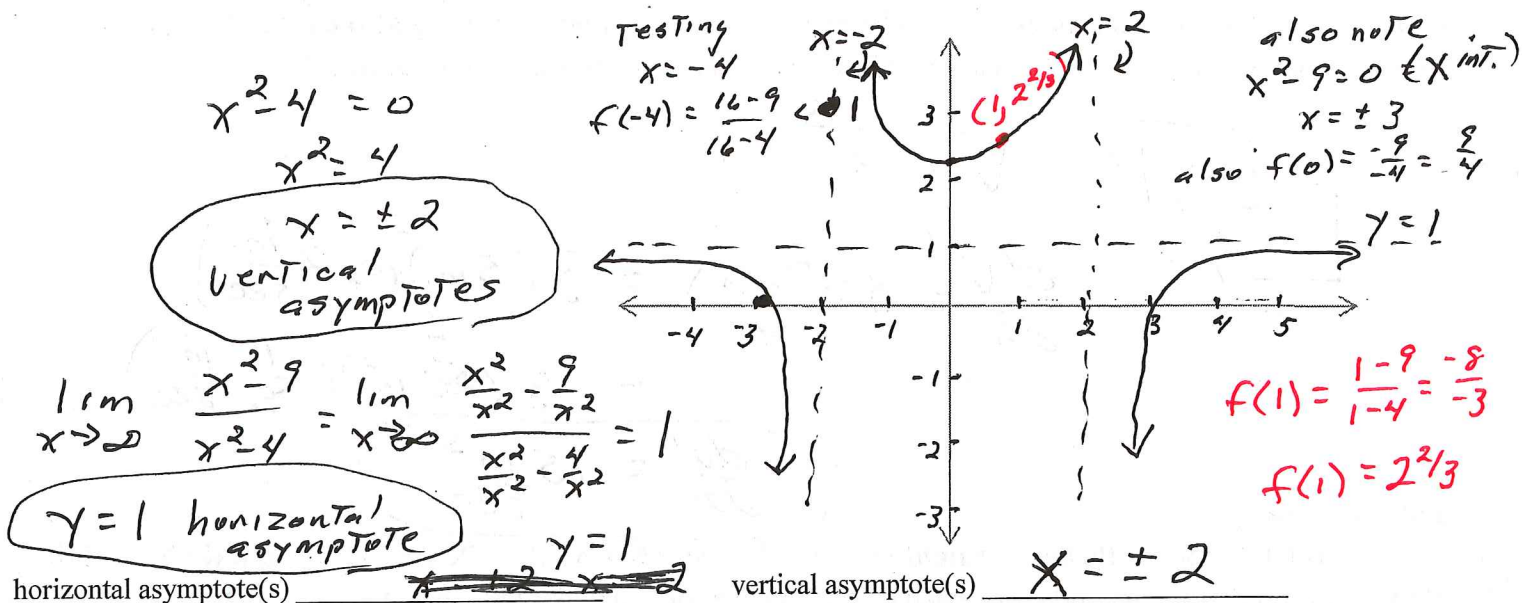 x² - 4 = 0
x² = 4
x = ± 2
vertical
asymptotes
lim x→∞ (x² - 9)/(x² - 4) = lim x→∞ (x²/x² - 9/x²)/(x²/x² - 4/x²) = 1
y = 1 horizontal
asymptote
Testing
x = -4
f(-4) = (16-9)/(16-4) < 1
x = -2
x = 2
(1, 2 2/3)
also note
x² - 9 = 0 (x int.)
x = ± 3
also f(0) = -9/-4 = 9/4
y = 1
3
2
1
-4 -3 -2 -1 1 2 3 4 5
-1
-2
-3
f(1) = (1-9)/(1-4) = -8/-3
f(1) = 2 2/3
y = 1
horizontal asymptote(s)
vertical asymptote(s) x = ± 2